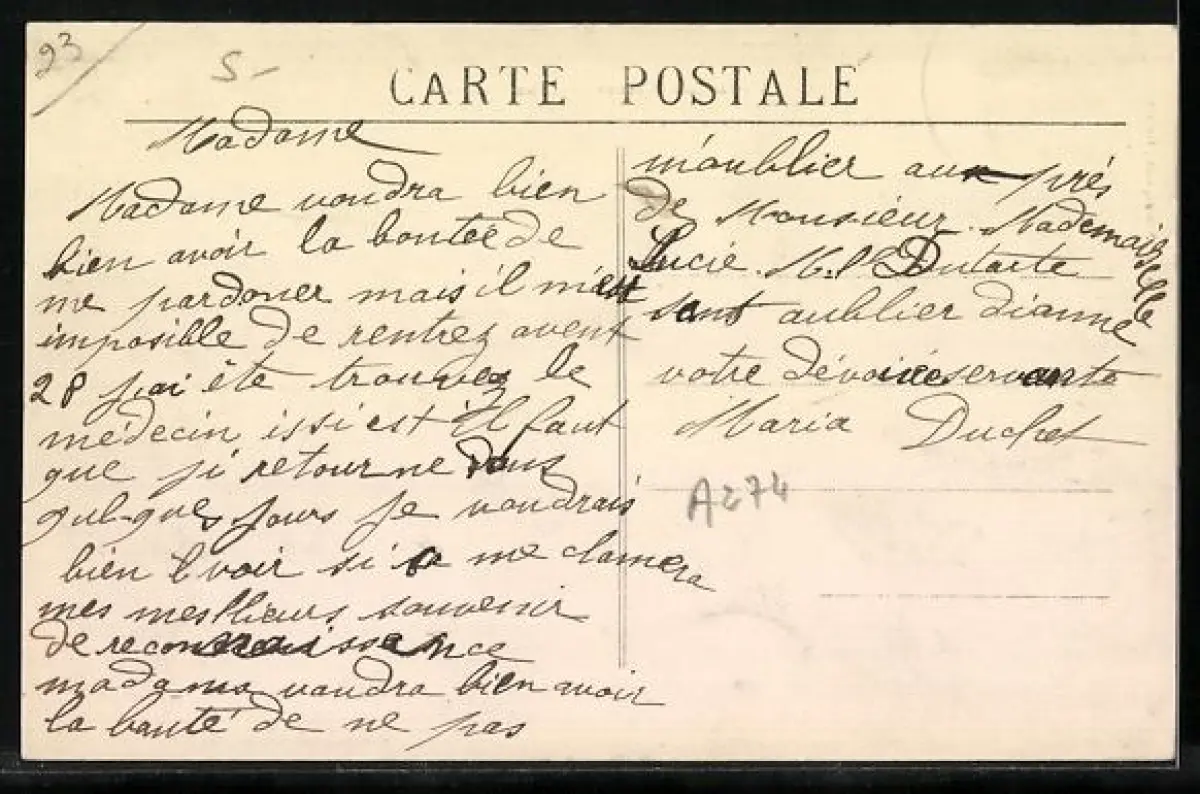 23
S-
CARTE POSTALE
Madame
Madame voudra bien
bien avoir la boutee de
me pardoner mais il m'est
imposible de rentrez avent
28 j'ai ête trouvez le
médecin issi est il faut
que ji retourne dans
quelques jours je voudrais
bien l'voir si sa me
mes meslheurs souvenir
de reconnaissance
madame vaudra bien avoir
la bauté de ne pas
m'oublier au près
de Monsieur. Mademaiselle
Lucie. M. Dutarte
sant aublier dianne
votre dévouée servante
Maria Duchet
A274